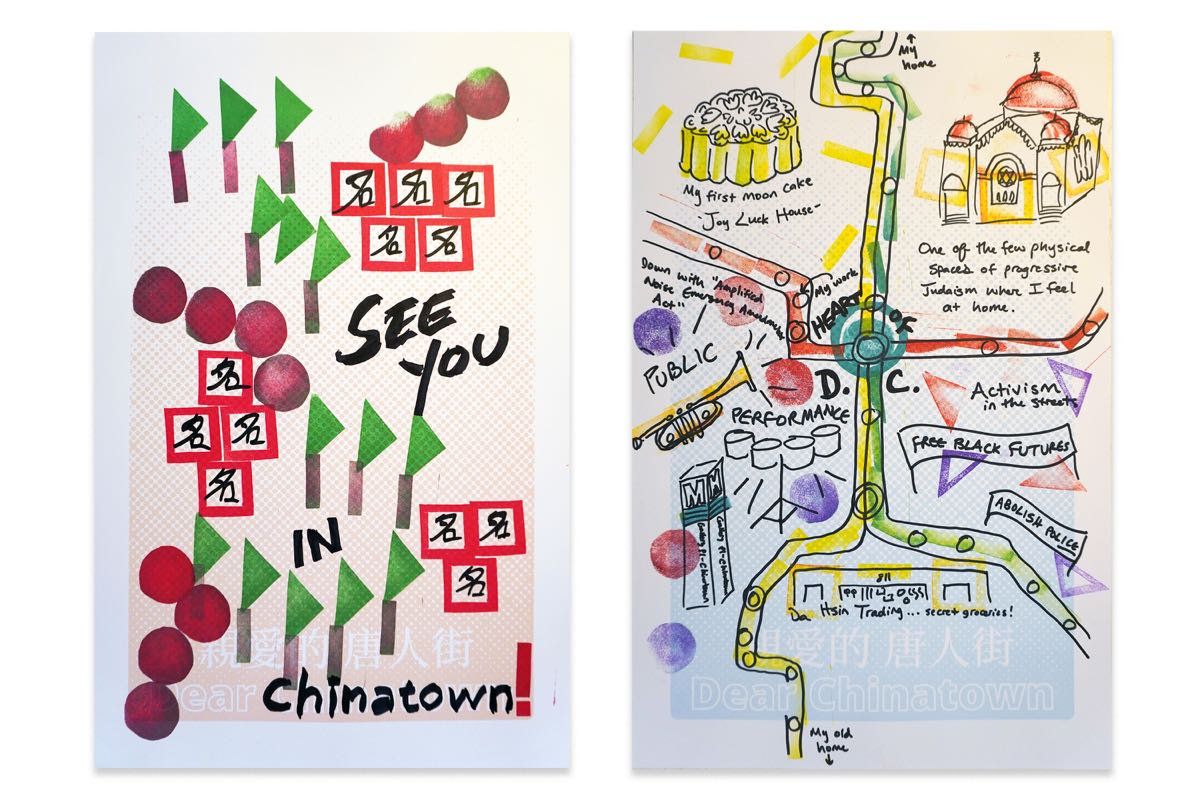 名 名 名
名 名
SEE
YOU
名
名 名
名
IN
名 名
名
親愛的 唐人街
Dear Chinatown
Chinatown!
My
home
My first moon cake
-Joy Luck House-
One of the few physical
spaces of progressive
Judaism where I feel
at home.
Down with "Amplified
Noise Emergency Amendment
Act"
My work
HEART OF
D. C.
PUBLIC
PERFORMANCE
Activism
in the streets
FREE BLACK FUTURES
ABOLISH POLICE
M M
Gallery Pl-Chinatown
Gallery Pl-Chinatown
811
Da Hsin Trading... secret groceries!
親愛的 唐人街
Dear Chinatown
My old
home